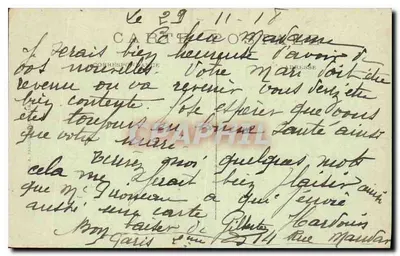 Le 29 11 - 18
CARTE POSTALE
Madame
Je serais bien heureuse d'avoir de
vos nouvelles. Votre Mari doit être
revenu ou va revenir vous devez être
bien contente. J'ose espérer que vous
êtes toujours en bonne santé ainsi
que votre mari
CPAPHIL
quelques mots
cela me ferait bien plaisir ainsi
que Mr à qui j'envoie
aussi une carte
Bon baiser de Gilberte
Paris Rue